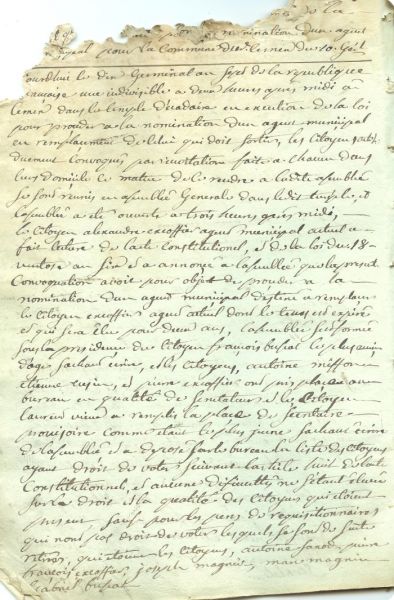 de la
pour nomination d'un agent
pal pour La Commune de lemen du 10. Gal
jourdhui le dix Germinal an sept de la republique
francaise une indivisible a deux heures apres midi a
lemen dans le temple decadaire en execution de la loi
pour proceder a la nomination d'un agent municipal
en remplacement de celui qui doit sortir, les Citoyens
duement Convoqués par invitation faite a chacun dans
leurs domicile le matin de se rendre a ladite assemblé
se sont reunis en assemblée Generale dans ledit temple, et
lassemblée a eté ouverte a trois heures apres midi,
le Citoyen alexandre excoffier agent municipal actuel a
fait lecture de lacte constitutionnel, et de la loi du 18
ventose an six et a annoncé a lassemblée que la presente
Convoquation avoit pour objet de proceder a la
nomination d'un agent municipal destiné a remplacer
le Citoyen excoffier agent actuel dont le tems est expiré
et qui sera élu pour deux ans, lassemblée sest formée
sous la presidence du Citoyen françois buset le plus ancien
dage sachant ecrire, et les Citoyens, antoine
etienne et pierre excoffier ont pris place au
bureau en qualité de scrutateurs et le Citoyen
laurent a remplis la place de secretaire
provisoire comme etant le plus jeune sachant ecrire
de lassemblé et a deposé sur le bureau la liste des Citoyens
ayant droit de voter suivant larticle huit de lacte
Constitutionnel, et aucune difficulté ne s'étant élevée
sur le droit et la qualité des Citoyens qui etoient
present, sauf pour les gens de requisitionnaires
qui nont pas droit de voter lesquels se sont de suite
retirés, qui etoient les Citoyens, antoine pierre
francois excoffier, joseph magnin, marc magnin
Gabriel buset